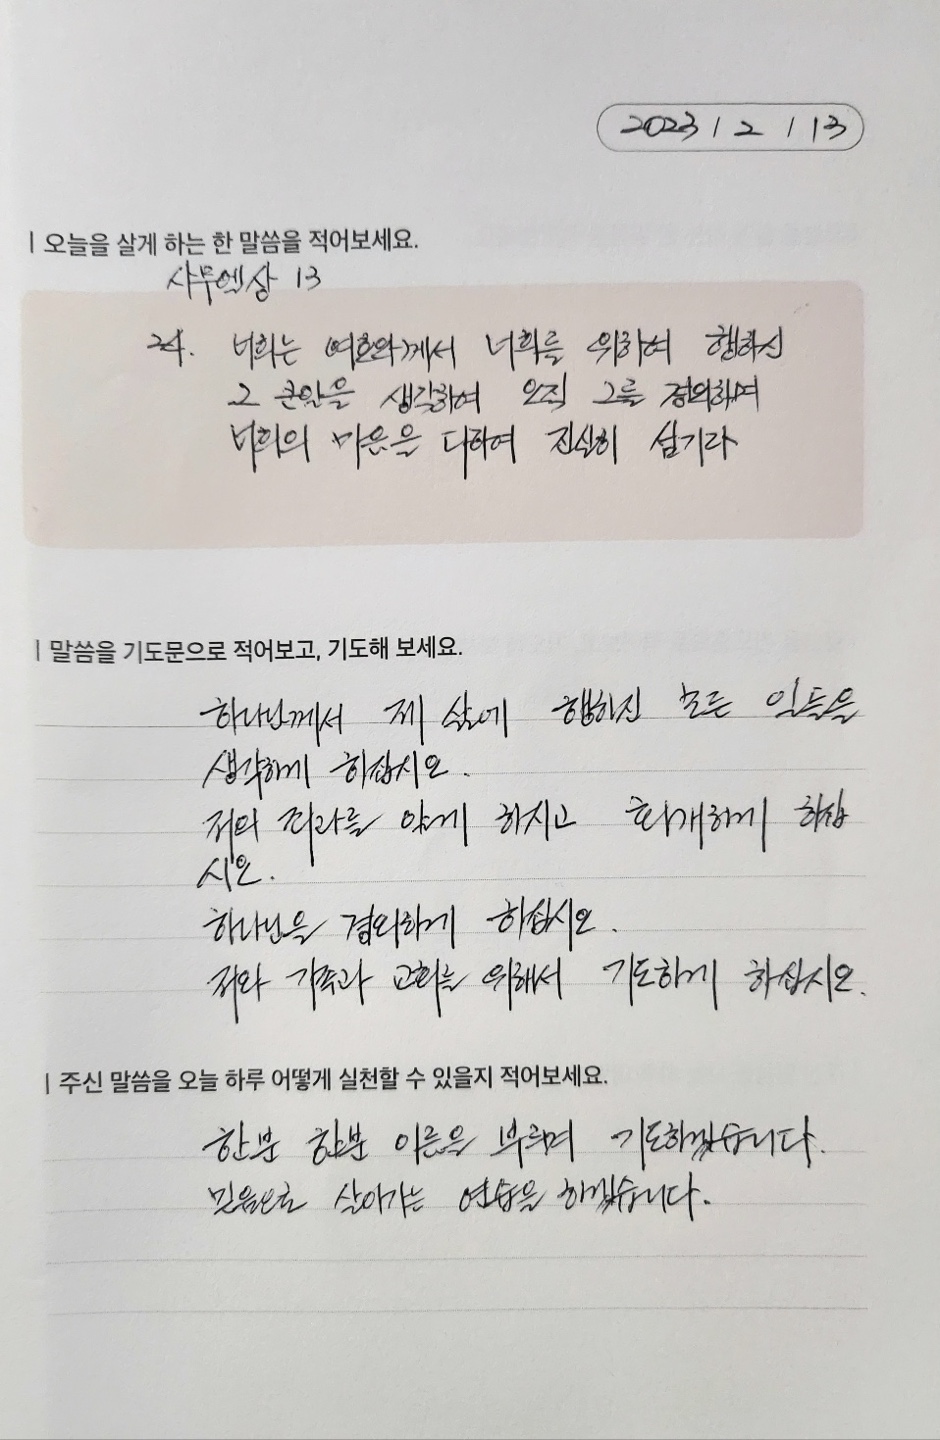 2023 / 2 / 13
| 오늘을 살게 하는 한 말씀을 적어보세요.
사무엘상 13
24. 너희는 여호와께서 너희를 위하여 행하신
그 큰일을 생각하여 오직 그를 경외하며
너희의 마음을 다하여 진실히 섬기라
| 말씀을 기도문으로 적어보고, 기도해 보세요.
하나님께서 제 삶에 행하신 모든 일들을
생각하게 하십시오.
저의 죄과를 알게 하시고 회개하게 하십
시오.
하나님을 경외하게 하십시오.
저와 가족과 교회를 위해서 기도하게 하십시오.
| 주신 말씀을 오늘 하루 어떻게 실천할 수 있을지 적어보세요.
한분 한분 이름을 부르며 기도하겠습니다.
믿음으로 살아가는 연습을 하겠습니다.